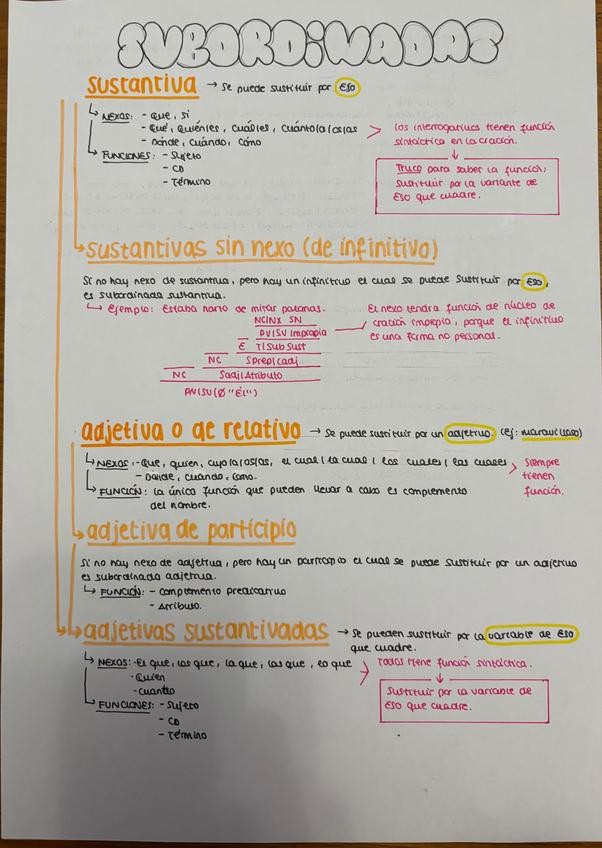 SUBORDINADAS
sustantiva → se puede sustituir por ESO
NEXOS: - que, si
- qué, quién/es, cuál/es, cuánto/a/os/as > los interrogativos tienen función
- dónde, cuándo, cómo sintáctica en la oración.
FUNCIONES: - Sujeto
- CD
- Término
↓
Truco para saber la función:
sustituir por la variante de
ESO que cuadre.
sustantivas sin nexo (de infinitivo)
Si no hay nexo de sustantiva, pero hay un infinitivo el cual se puede sustituir por ESO,
es subordinada sustantiva.
Ejemplo: Estaba harto de mirar patanas.
NC/NX SN
PV/SV Impropia
E T/Sub Sust
NC SPrep/cadj
NC Sadj/Atributo
PV/SV(Ø "Él")
El nexo tendrá función de núcleo de
oración impropia, porque el infinitivo
es una forma no personal.
adjetiva o de relativo → Se puede sustituir por un adjetivo. (ej: maravilloso)
NEXOS: - que, quien, cuyo/a/os/as, el cual / la cual / los cuales / las cuales > siempre
- Donde, cuando, como. tienen
FUNCIÓN: la única función que pueden llevar a cabo es complemento función.
del nombre.
adjetiva de participio
Si no hay nexo de adjetiva, pero hay un participio el cual se puede sustituir por un adjetivo
es subordinada adjetiva.
FUNCIÓN: - Complemento predicativo
- Atributo.
adjetivas sustantivadas → Se pueden sustituir por la variable de ESO
que cuadre.
NEXOS: - El que, los que, la que, las que, lo que > Todos tiene función sintáctica.
- Quien
- Cuanto
FUNCIONES: - Sujeto
- CD
- Término
↓
Sustituir por la variable de
ESO que cuadre.